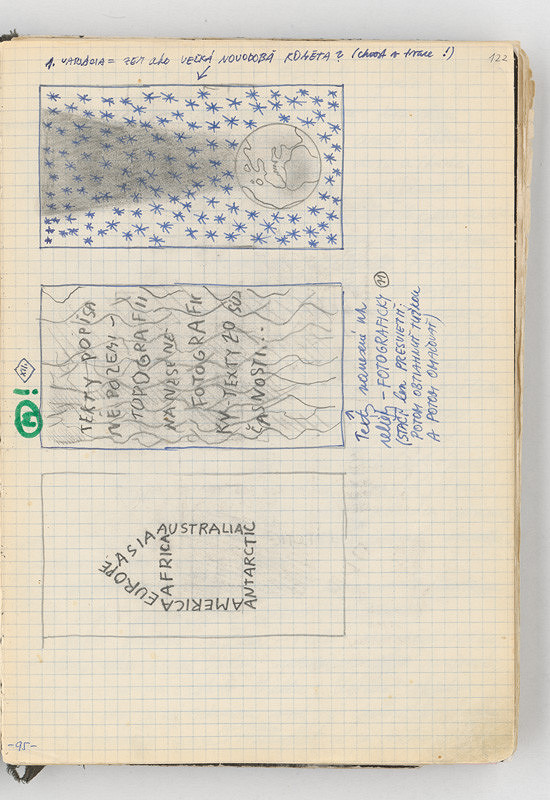 1. VARIÁCIA = ZEM AKO VEĽKÁ NOVODOBÁ KOMÉTA? (chvost a tvar !)
122
TEXTY POPÍSA
NÉ PO ZEMI -
TOPOGRAFII
NANESENÉ
FOTOGRAFIC
KY-TEXTY ZO SÚ
ČASNOSTI...
XII
!
Text nanesení na
reliéf - FOTOGRAFICKY
(STAČÍ len PRESVIETIŤ:
POTOM OBTIAHNUŤ TUŽKOU
A POTOM
EUROPE
ASIA
AUSTRALIA
AFRICA
AMERICA
ANTARCTIC
-95-